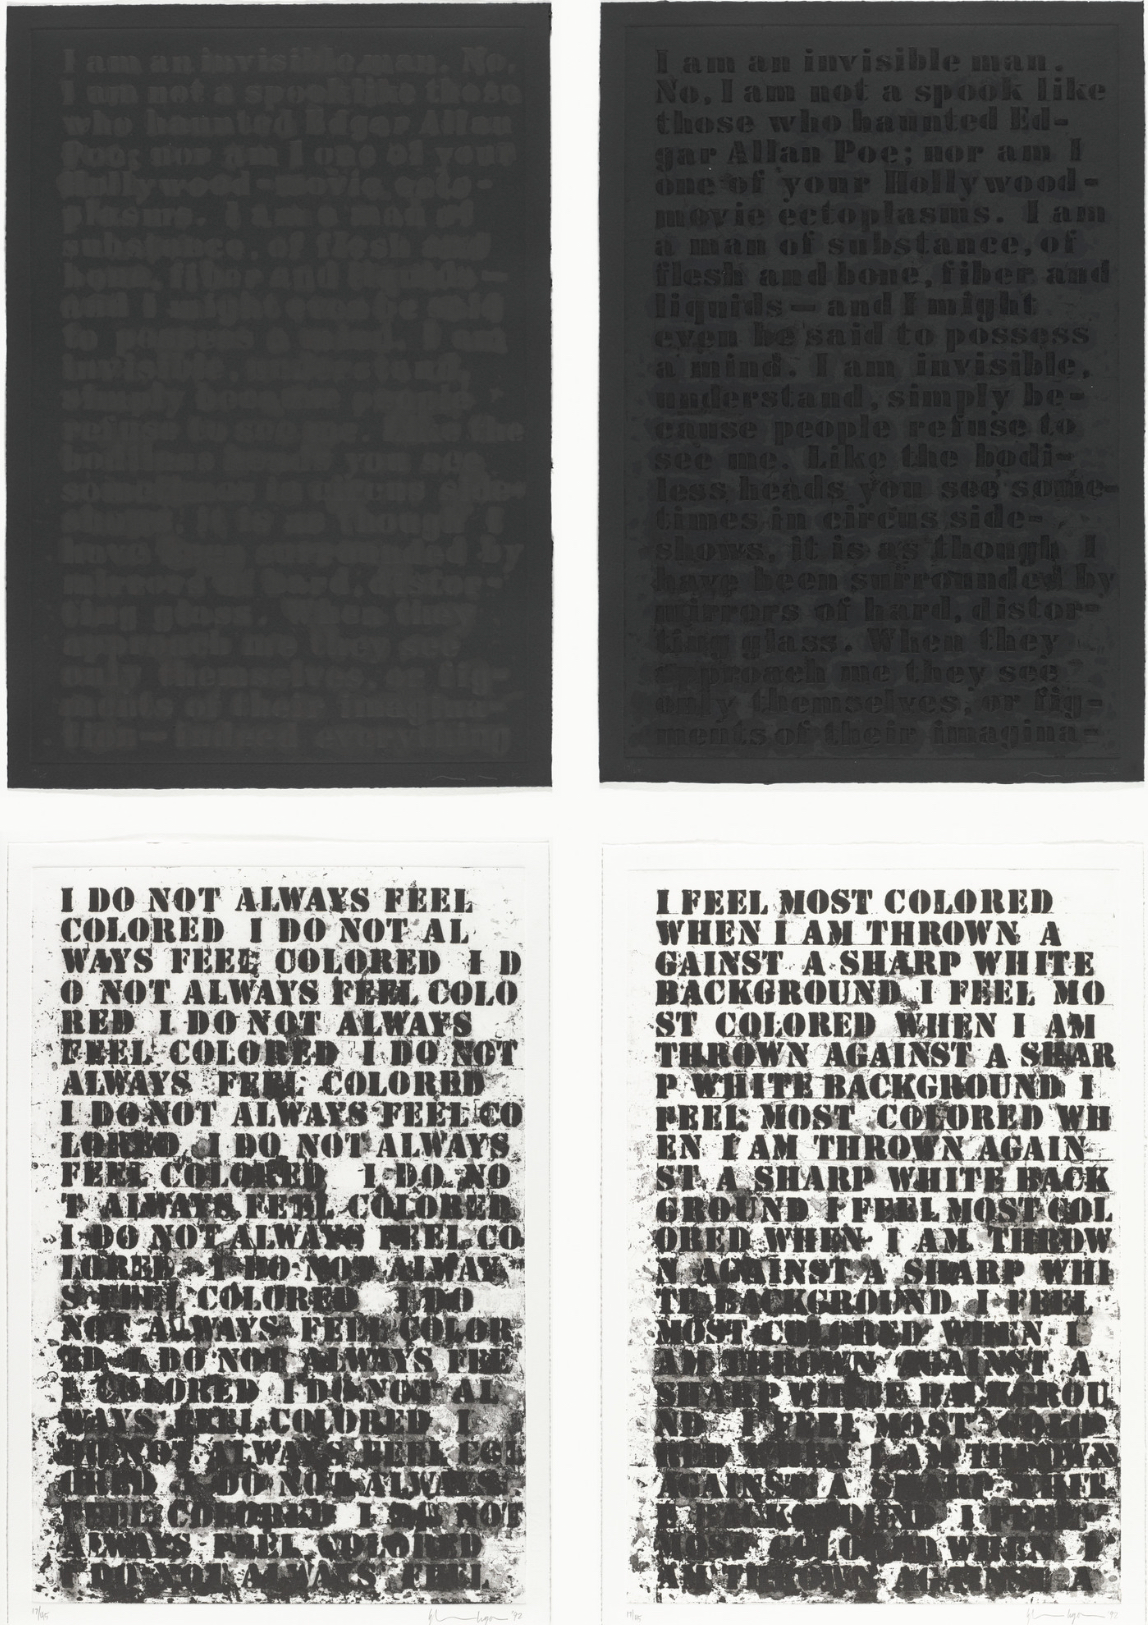 I am an invisible man. No,
I am not a spook like those
who haunted Edgar Allan
Poe; nor am I one of your
Hollywood-movie ecto-
plasms. I am a man of
substance, of flesh and
bone, fiber and liquids—
and I might even be said
to possess a mind. I am
invisible, understand,
simply because people
refuse to see me. Like the
bodiless heads you see
sometimes in circus side-
shows, it is as though I
have been surrounded by
mirrors of hard, distor-
ting glass. When they
approach me they see
only themselves, or fig-
ments of their imagina-
tion— indeed everything
I am an invisible man.
No, I am not a spook like
those who haunted Ed-
gar Allan Poe; nor am I
one of your Hollywood-
movie ectoplasms. I am
a man of substance, of
flesh and bone, fiber and
liquids— and I might
even be said to possess
a mind. I am invisible,
understand, simply be-
cause people refuse to
see me. Like the bodi-
less heads you see some-
times in circus side-
shows, it is as though I
have been surrounded by
mirrors of hard, distor-
ting glass. When they
approach me they see
only themselves, or fig-
ments of their imagina-
I DO NOT ALWAYS FEEL
COLORED I DO NOT AL
WAYS FEEL COLORED I D
O NOT ALWAYS FEEL COLO
RED I DO NOT ALWAYS
FEEL COLORED I DO NOT
ALWAYS FEEL COLORED
I DO NOT ALWAYS FEEL CO
LORED I DO NOT ALWAYS
FEEL COLORED I DO NO
T ALWAYS FEEL COLORED
I DO NOT ALWAYS FEEL CO
LORED I DO NOT ALWAY
S FEEL COLORED I DO
NOT ALWAYS FEEL COLOR
ED I DO NOT ALWAYS FEE
L COLORED I DO NOT AL
WAYS FEEL COLORED I
DO NOT ALWAYS FEEL COL
ORED I DO NOT ALWAYS
FEEL COLORED I DO NOT
ALWAYS FEEL COLORED
I DO NOT ALWAYS FEEL
I FEEL MOST COLORED
WHEN I AM THROWN A
GAINST A SHARP WHITE
BACKGROUND I FEEL MO
ST COLORED WHEN I AM
THROWN AGAINST A SHAR
P WHITE BACKGROUND I
FEEL MOST COLORED WH
EN I AM THROWN AGAIN
ST A SHARP WHITE BACK
GROUND I FEEL MOST COL
ORED WHEN I AM THROW
N AGAINST A SHARP WHI
TE BACKGROUND I FEEL
MOST COLORED WHEN I
AM THROWN AGAINST A
SHARP WHITE BACKGROU
ND I FEEL MOST COLO
RED WHEN I AM THROWN
AGAINST A SHARP WHITE
BACKGROUND I FEEL
MOST COLORED WHEN I
AM THROWN AGAINST A